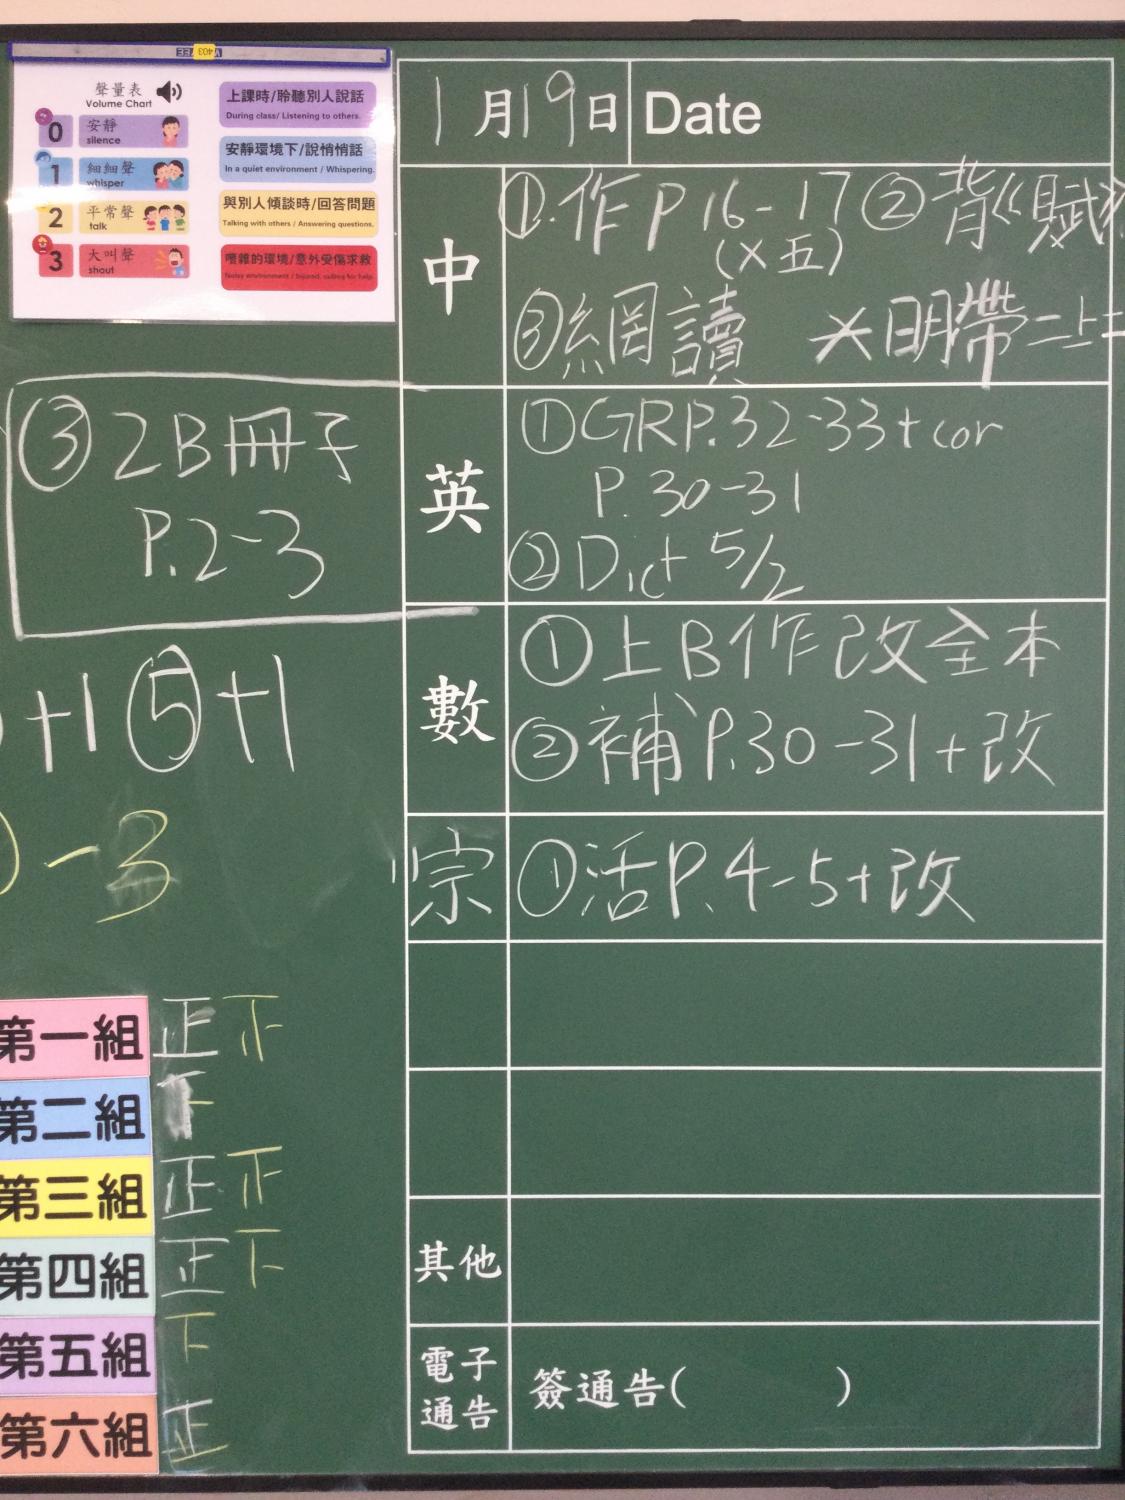 聲量表
Volume Chart
0 安靜 silence
1 細細聲 whisper
2 平常聲 talk
3 大叫聲 shout
上課時/聆聽別人說話
During class/ Listening to others.
安靜環境下/說悄悄話
In a quiet environment / Whispering.
與別人傾談時/回答問題
Talking with others / Answering questions.
嘈雜的環境/意外受傷求救
Noisy environment / Injured, calling for help.
1月19日 Date
中
①.作P16-17 ②背《賦
(X五)
③網讀 大明帶二上二
英
①GRP.32-33+cor
P.30-31
②Dict 5/2
數
①上B作改全本
②補P.30-31+改
宗 ①活P.4-5+改
其他
電子
通告
簽通告( )
③2B冊子
P.2-3
+1 ⑤+1
-3
第一組 正
第二組
第三組 正
第四組 正 下
第五組 下
第六組 正